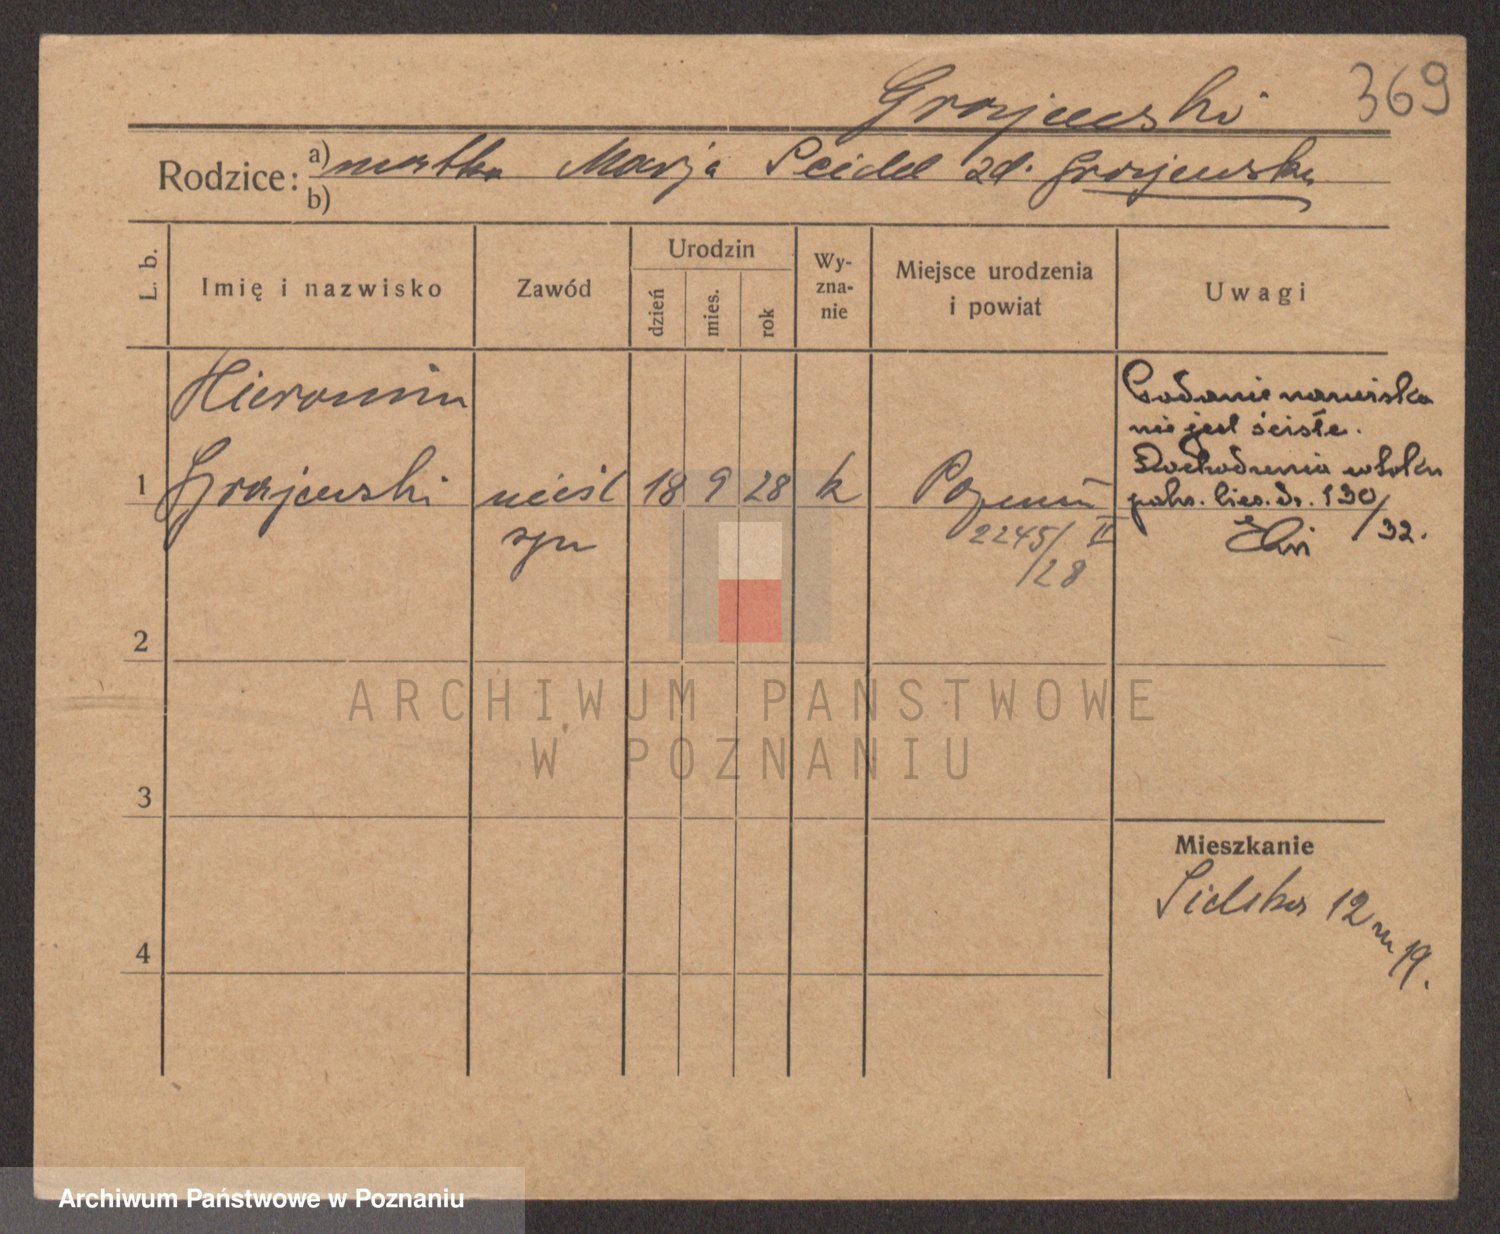 Grajewski 369
Rodzice: a) matka Marja Seidel zd. Grajewska
b)
L. b.
Imię i nazwisko
Zawód
Urodzin
dzień
mies.
rok
Wy-
zna-
nie
Miejsce urodzenia
i powiat
Uwagi
Hieronim
1 Grajewski nieśl 18 9 28 k Poznań
syn
2245/II
/28
Podanie nazwiska
nie jest ścisłe.
Dochodzenia w toku
130
/32.
2
3
4
Mieszkanie
Sielska 12 m 19.
ARCHIWUM PAŃSTWOWE
W POZNANIU
Archiwum Państwowe w Poznaniu